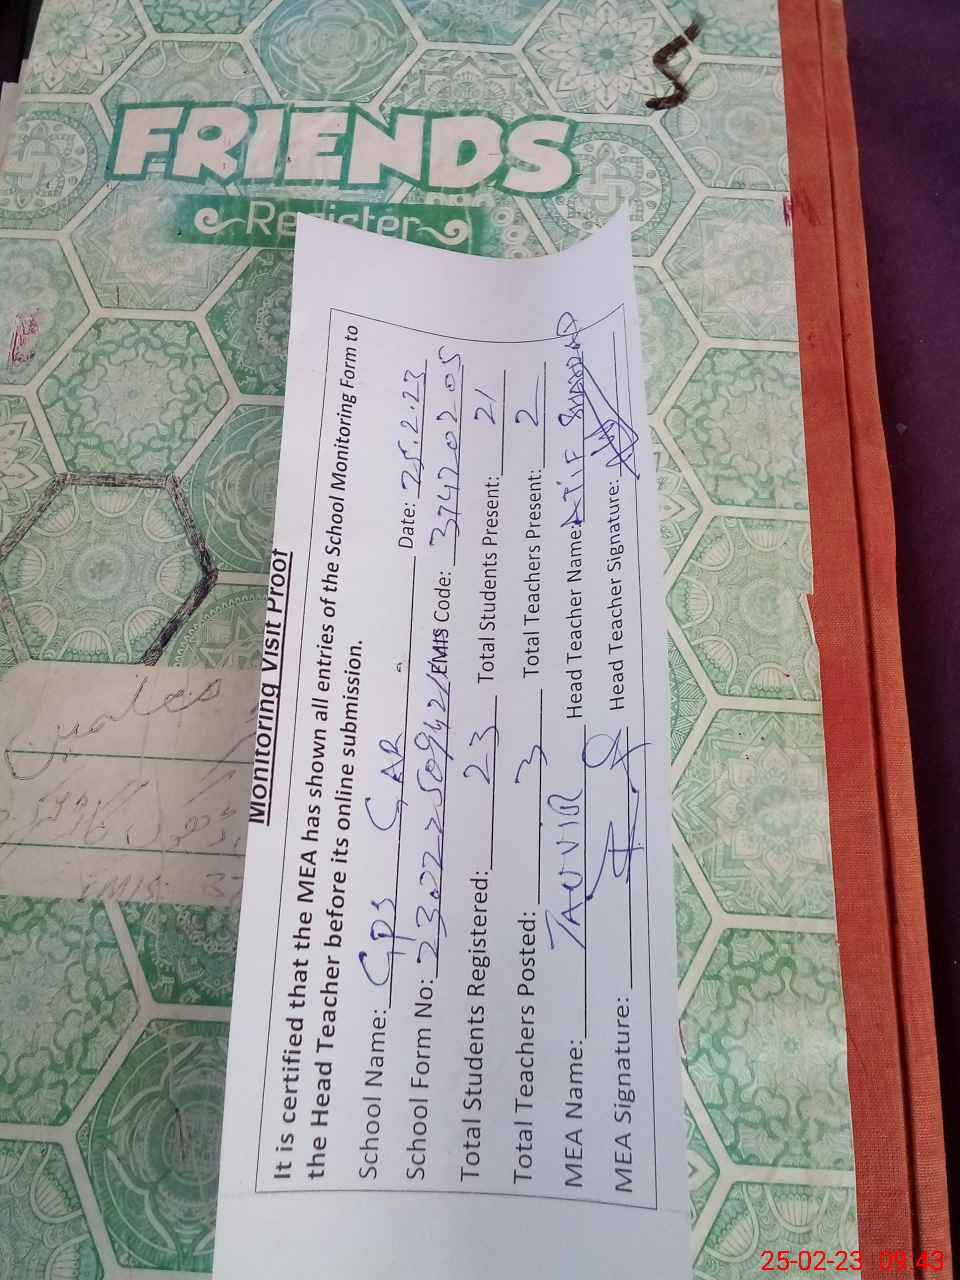 FRIENDS
Register
5
Monitoring Visit Proof
It is certified that the MEA has shown all entries of the School Monitoring Form to
the Head Teacher before its online submission.
School Name: GPS Date: 25.2.23
School Form No: EMIS Code: 37470205
Total Students Registered: 23 Total Students Present: 21
Total Teachers Posted: 3 Total Teachers Present: 2
MEA Name: Head Teacher Name: ATIF
MEA Signature: Head Teacher Signature:
EMIS: 37
25-02-23 09:43